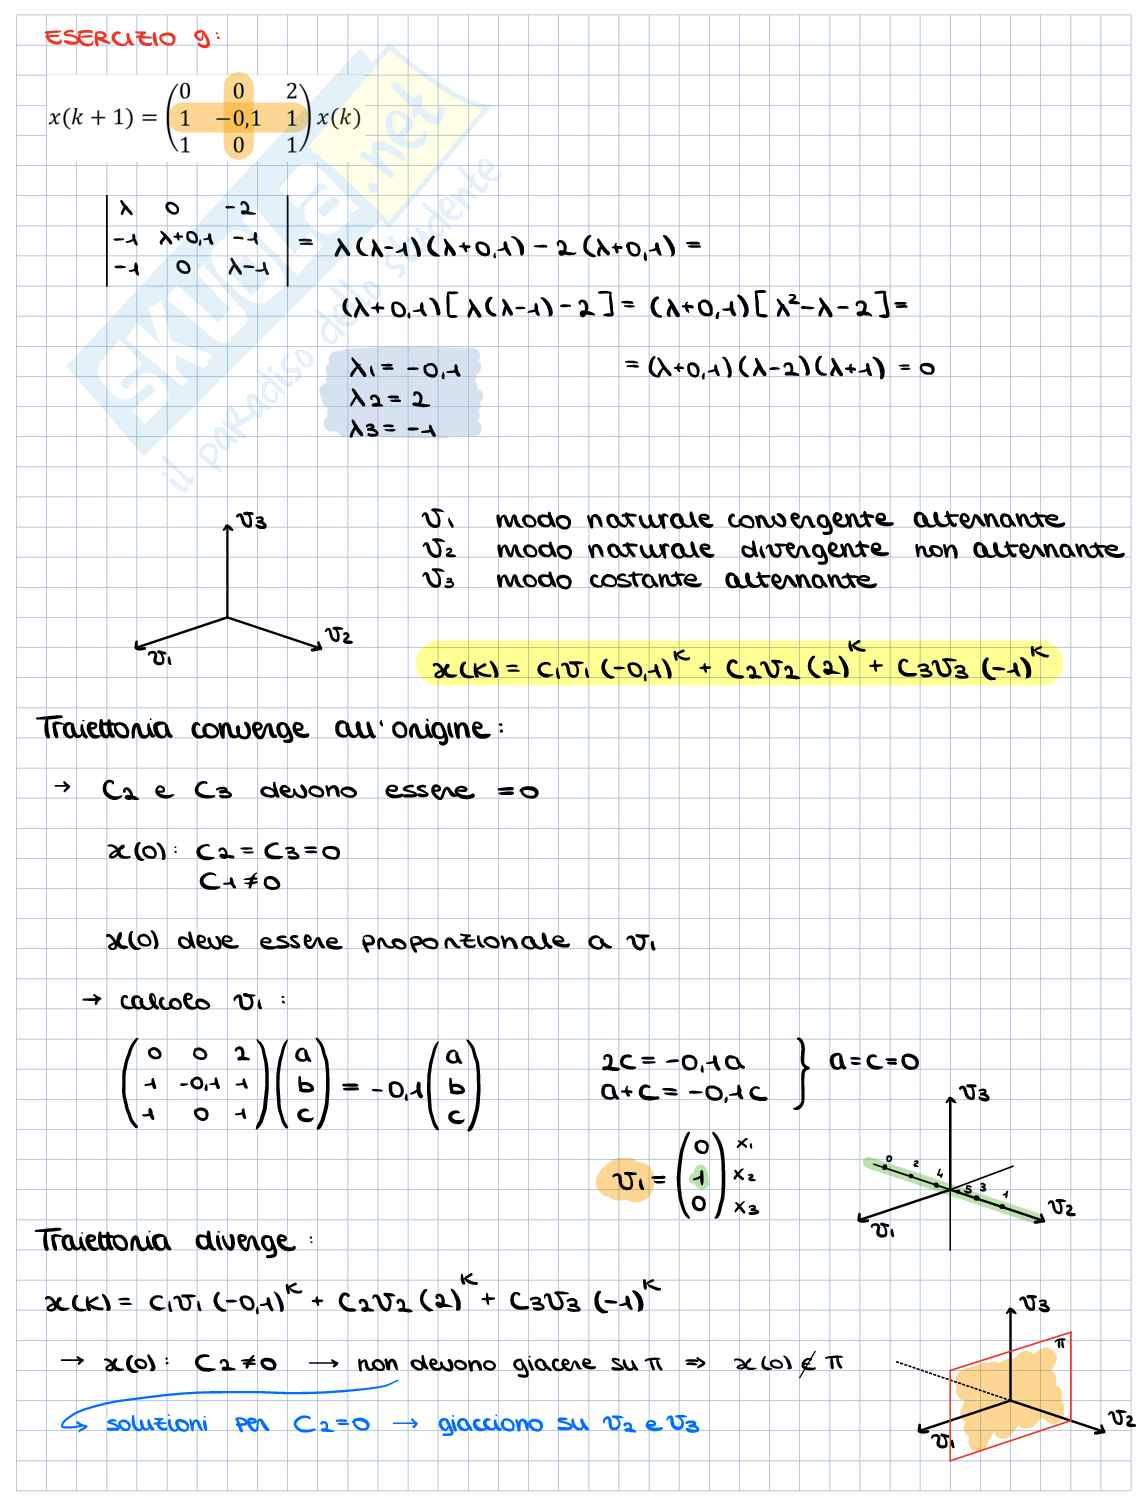 ESERCIZIO 9:
x(k + 1) = (0 0 2
1 −0,1 1
1 0 1) x(k)
|λ 0 -2
-1 λ+0,1 -1
-1 0 λ-1| = λ(λ-1)(λ+0,1) - 2(λ+0,1) =
(λ+0,1)[λ(λ-1)-2] = (λ+0,1)[λ²-λ-2] =
λ1 = -0,1 = (λ+0,1)(λ-2)(λ+1) = 0
λ2 = 2
λ3 = -1
SKUOLA.net
il paradiso dello studente
v3
v2
v1
v1 modo naturale convergente alternante
v2 modo naturale divergente non alternante
v3 modo costante alternante
x(k) = c1v1(-0,1)^k + c2v2(2)^k + c3v3(-1)^k
Traiettoria converge all'origine:
→ C2 e C3 devono essere =0
x(0): C2 = C3 = 0
C1 ≠ 0
x(0) deve essere proporzionale a v1
→ calcolo v1:
(0 0 2
1 -0,1 1
1 0 1) (a
b
c) = -0,1 (a
b
c)
2c = -0,1a
a+c = -0,1c } a=c=0
v1 = (0 x1
1 x2
0) x3
v3
0 2 4 5 3 1
v2
v1
Traiettoria diverge:
x(k) = c1v1(-0,1)^k + c2v2(2)^k + c3v3(-1)^k
→ x(0): C2≠0 → non devono giacere su π ⇒ x(0) ∉ π
↳ soluzioni per C2=0 → giacciono su v2 e v3
v3
π
v2
v1